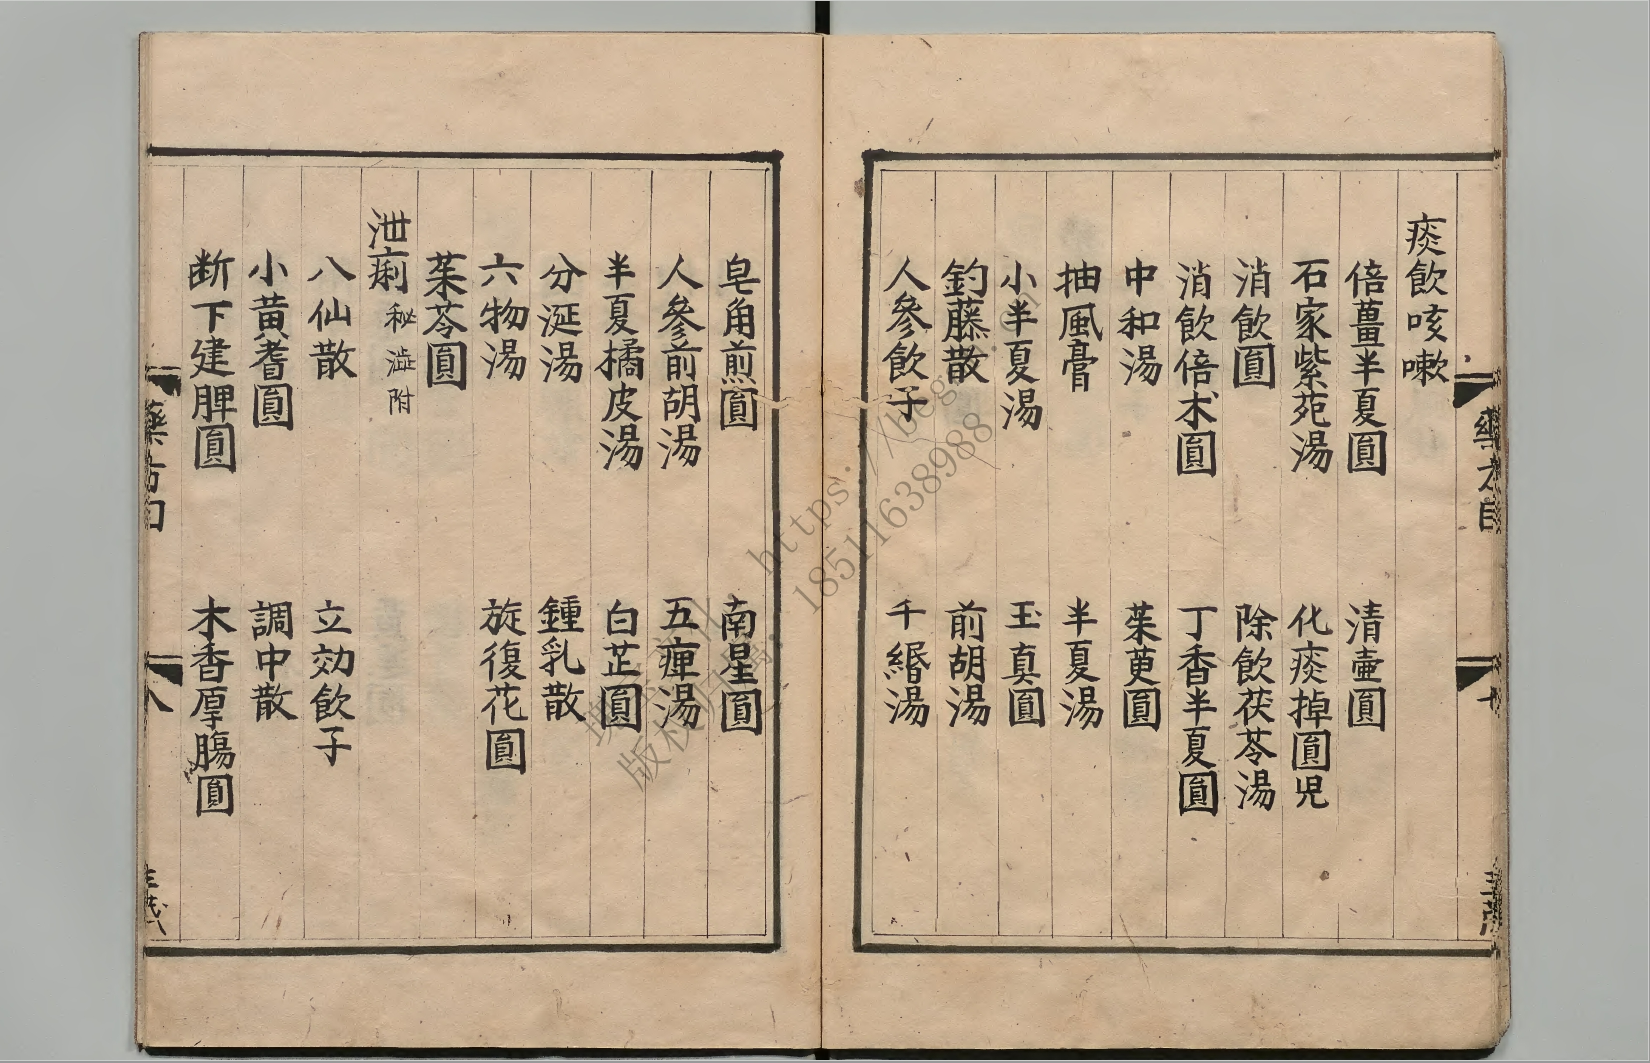 痰飲咳嗽
倍薑半夏圓　清壺圓
石家紫苑湯　化痰掉圓児
消飲圓　除飲茯苓湯
消飲倍朮圓　丁香半夏圓
中和湯　茱萸圓
抽風膏　半夏湯
小半夏湯　玉真圓
釣藤散　前胡湯
人參飲子　千緡湯
皂角煎圓　南星圓
人參前胡湯　五痺湯
半夏橘皮湯　白芷圓
分涎湯　鍾乳散
六物湯　旋復花圓
茱苓圓
泄痢 秘澁附
八仙散　立効飲子
小黄耆圓　調中散
断下建脾圓　木香厚腸圓
藥方目
八
https://
18511638988
版权归属: